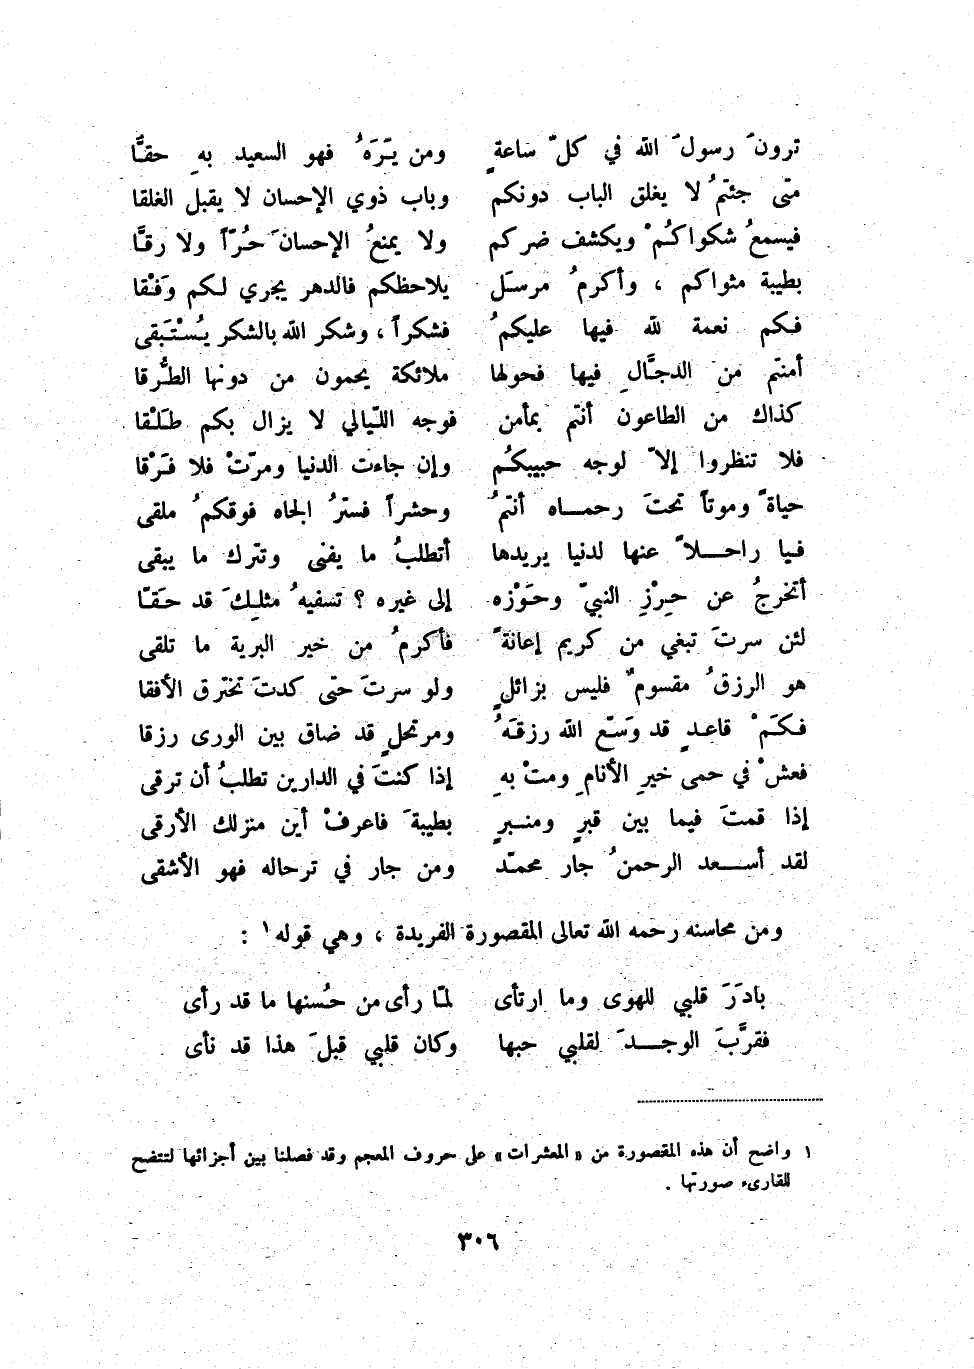 ترونَ رسولَ الله في كلّ ساعةٍ ومن يَرَهُ فهو السعيد بهِ حقَّا
متى جئتمُ لا يغلق الباب دونكم وباب ذوي الإحسان لا يقبل الغلقا
فيسمعُ شكواكُمْ ويكشف ضركم ولا يمنعُ الإحسانَ حُرّاً ولا رقَّا
بطيبة مثواكم ، وأكرمُ مرسَل يلاحظكم فالدهر يجري لكم وَفْقا
فكم نعمة لله فيها عليكمُ فشكراً ، وشكر الله بالشكر يُسْتَبقى
أمنتم من الدجَّالِ فيها فحولها ملائكة يحمون من دونها الطُّرقا
كذاك من الطاعون أنتم بمأمن فوجه اللّيالي لا يزال بكم طَلْقا
فلا تنظروا إلاّ لوجه حبيبكُم وإن جاءت الدنيا ومرّتْ فلا فَرْقا
حياةً وموتاً تحتَ رحماه أنتمُ وحشراً فسترُ الجاه فوقكمُ ملقى
فيا راحلاً عنها لدنيا يريدها أتطلبُ ما يفنى وتترك ما يبقى
أتخرجُ عن حِرْزِ النبيّ وحَوْزه إلى غيره ؟ تسفيهُ مثلِكَ قد حَقّا
لئن سرتَ تبغي من كريم إعانةً فأكرمُ من خير البرية ما تلقى
هو الرزقُ مقسومٌ فليس بزائلٍ ولو سرتَ حتى كدتَ تخترق الأفقا
فكَمْ قاعدٍ قد وَسّع الله رزقَهُ ومرتحلٍ قد ضاق بين الورى رزقا
فعشْ في حمى خيرِ الأنامِ ومتْ بهِ إذا كنتَ في الدارين تطلبُ أن ترقى
إذا قمتَ فيما بين قبرٍ ومنبرٍ بطيبةَ فاعرفْ أين منزلك الأرقى
لقد أسعد الرحمنُ جار محمّد ومن جار في ترحاله فهو الأشقى
ومن محاسنه رحمه الله تعالى المقصورة الفريدة ، وهي قوله١ :
بادَرَ قلبي للهوى وما ارتأى لمّا رأى من حُسنها ما قد رأى
فقرَّبَ الوجدَ لقلبي حبها وكان قلبي قبلَ هذا قد نأى
١ واضح أن هذه المقصورة من « المعشرات » على حروف المعجم وقد فصلنا بين أجزائها لتتضح
للقارىء صورتها .
٣٠٦